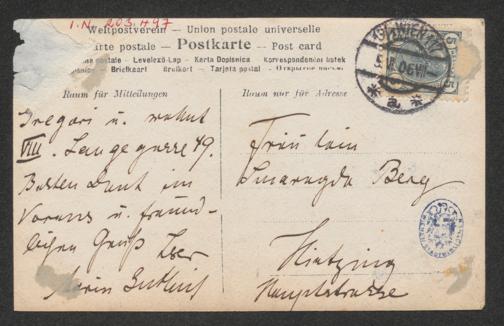 I.N. 203.497
Weltpostverein – Union postale universelle
Carte postale – Postkarte – Post card
Levelező-Lap – Karta Dopisnica – Korespondenční listek
Briefkaart – Brefkort – Tarjeta postal – Открытое письмо
Raum für Mitteilungen
Raum nur für Adresse
Gregori u. wohnt
VIII. Langegasse 49.
Besten Dank im
Voraus u. freund-
lichen Gruß Ihr
Fräulein
Smaragda Berg
Hietzing
Hauptstrasse
19/1 WIEN
5